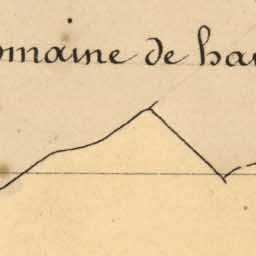 omaine de hau